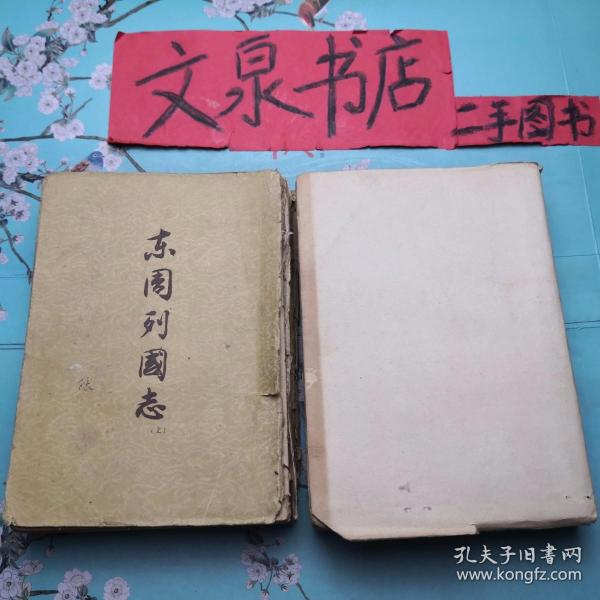 文泉书店
二手图书
东周列國志
(上)
孔夫子旧書网
www.kongfz.com